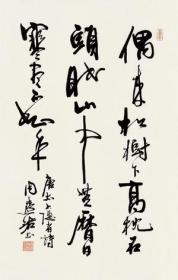 偶来松樹下高枕石
頭眠山中無曆日
寒尽不知年
唐太上隐者詩
周慧珺書